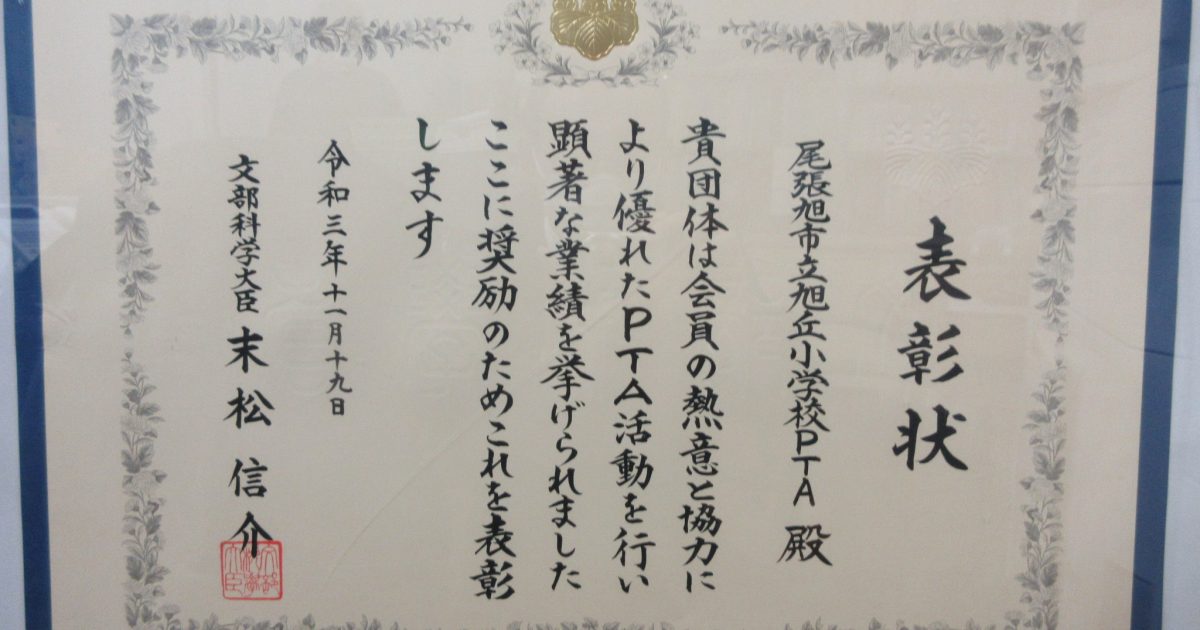 表彰状
尾張旭市立旭丘小学校PTA 殿
貴団体は会員の熱意と協力に
より優れたPTA活動を行い
顕著な業績を挙げられました
ここに奨励のためこれを表彰
します
令和三年十一月十九日
文部科学大臣 末松信介